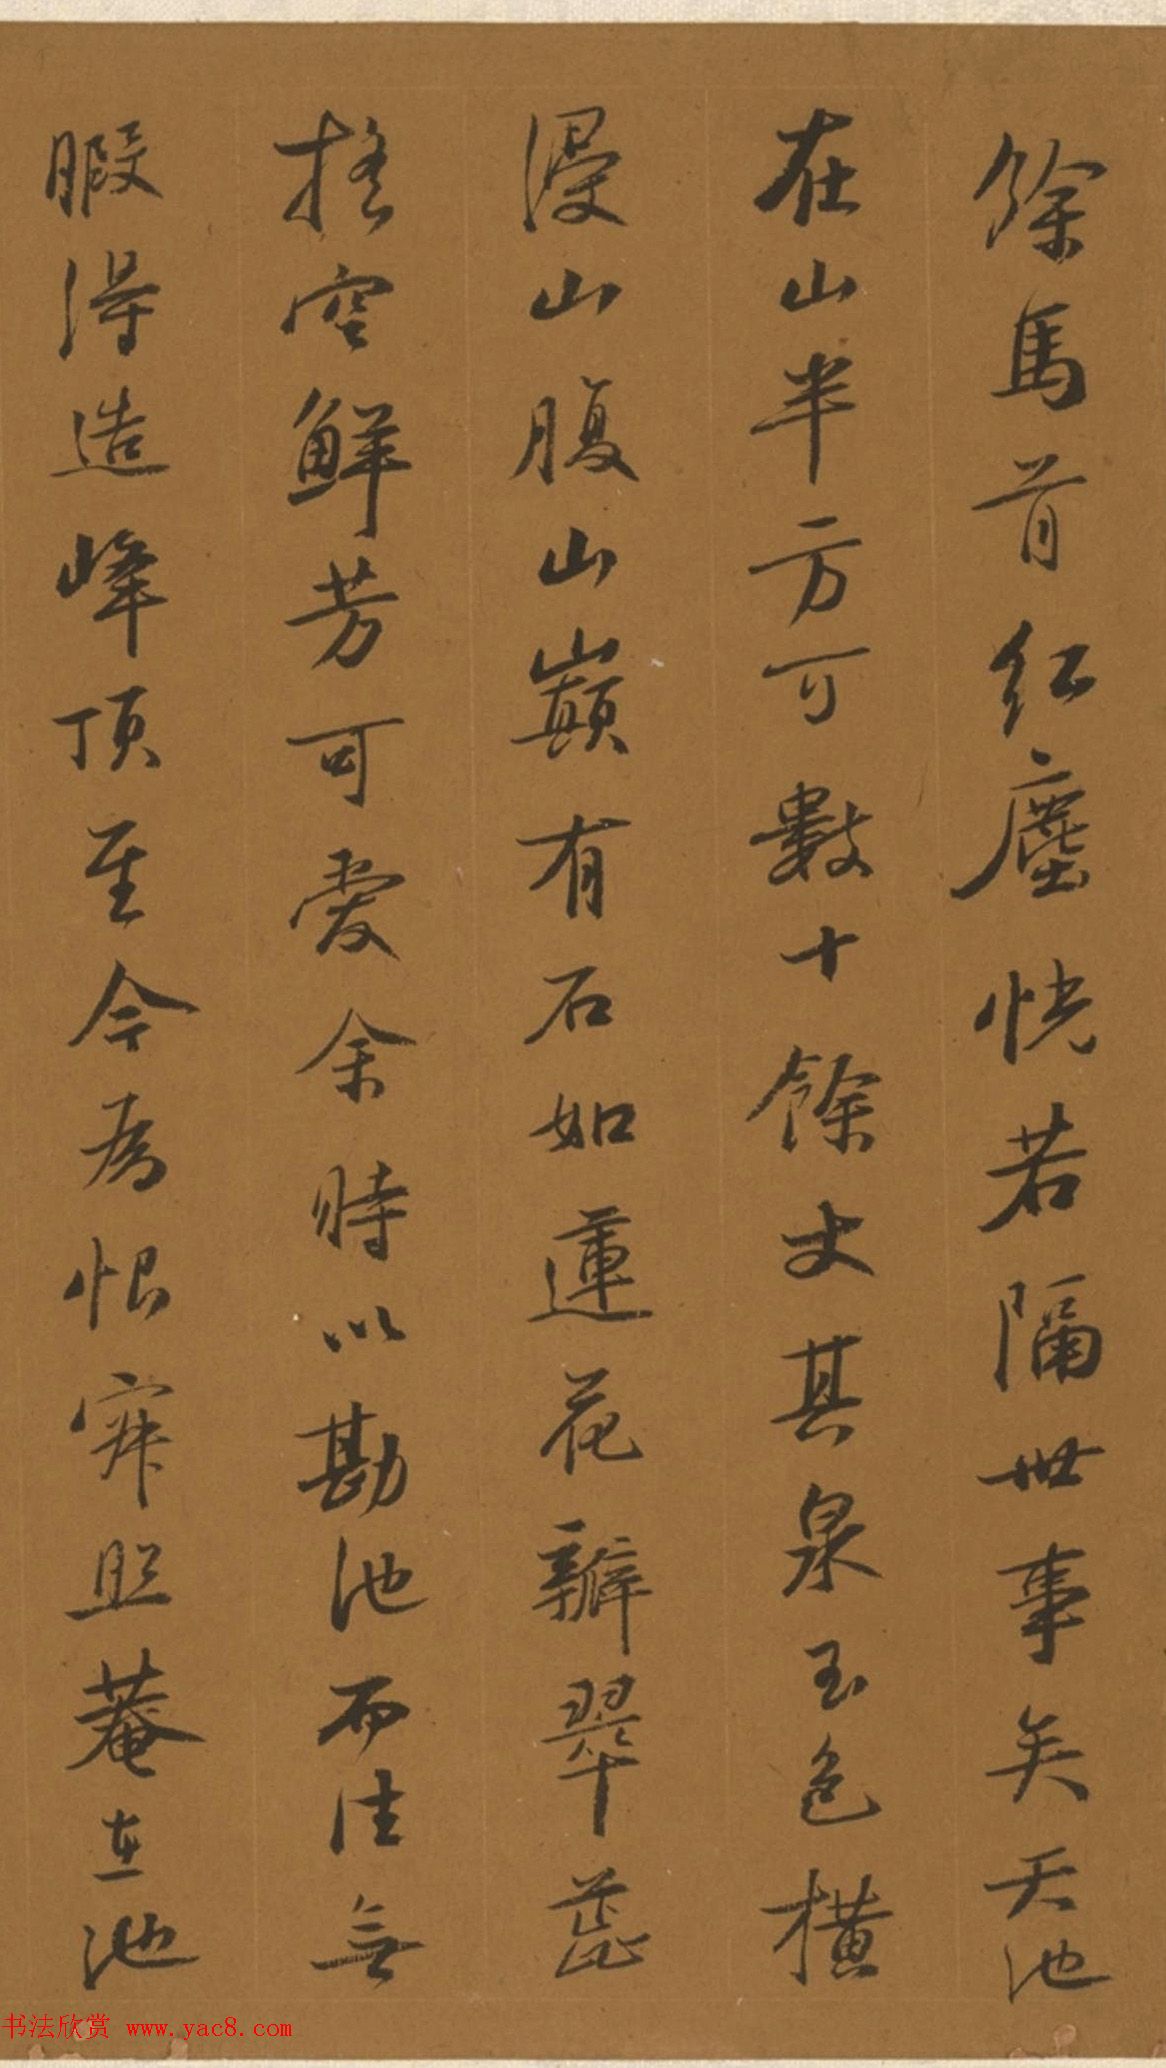 餘馬首紅塵恍若隔世事矣天池
在山半方可數十餘丈其泉玉色橫
浸山腹山巔有石如蓮花瓣翠蕊
搖空鮮芳可愛余時以勘池而往無
暇得造峰頂至今為恨寂照菴在池
书法欣赏 www.yac8.com